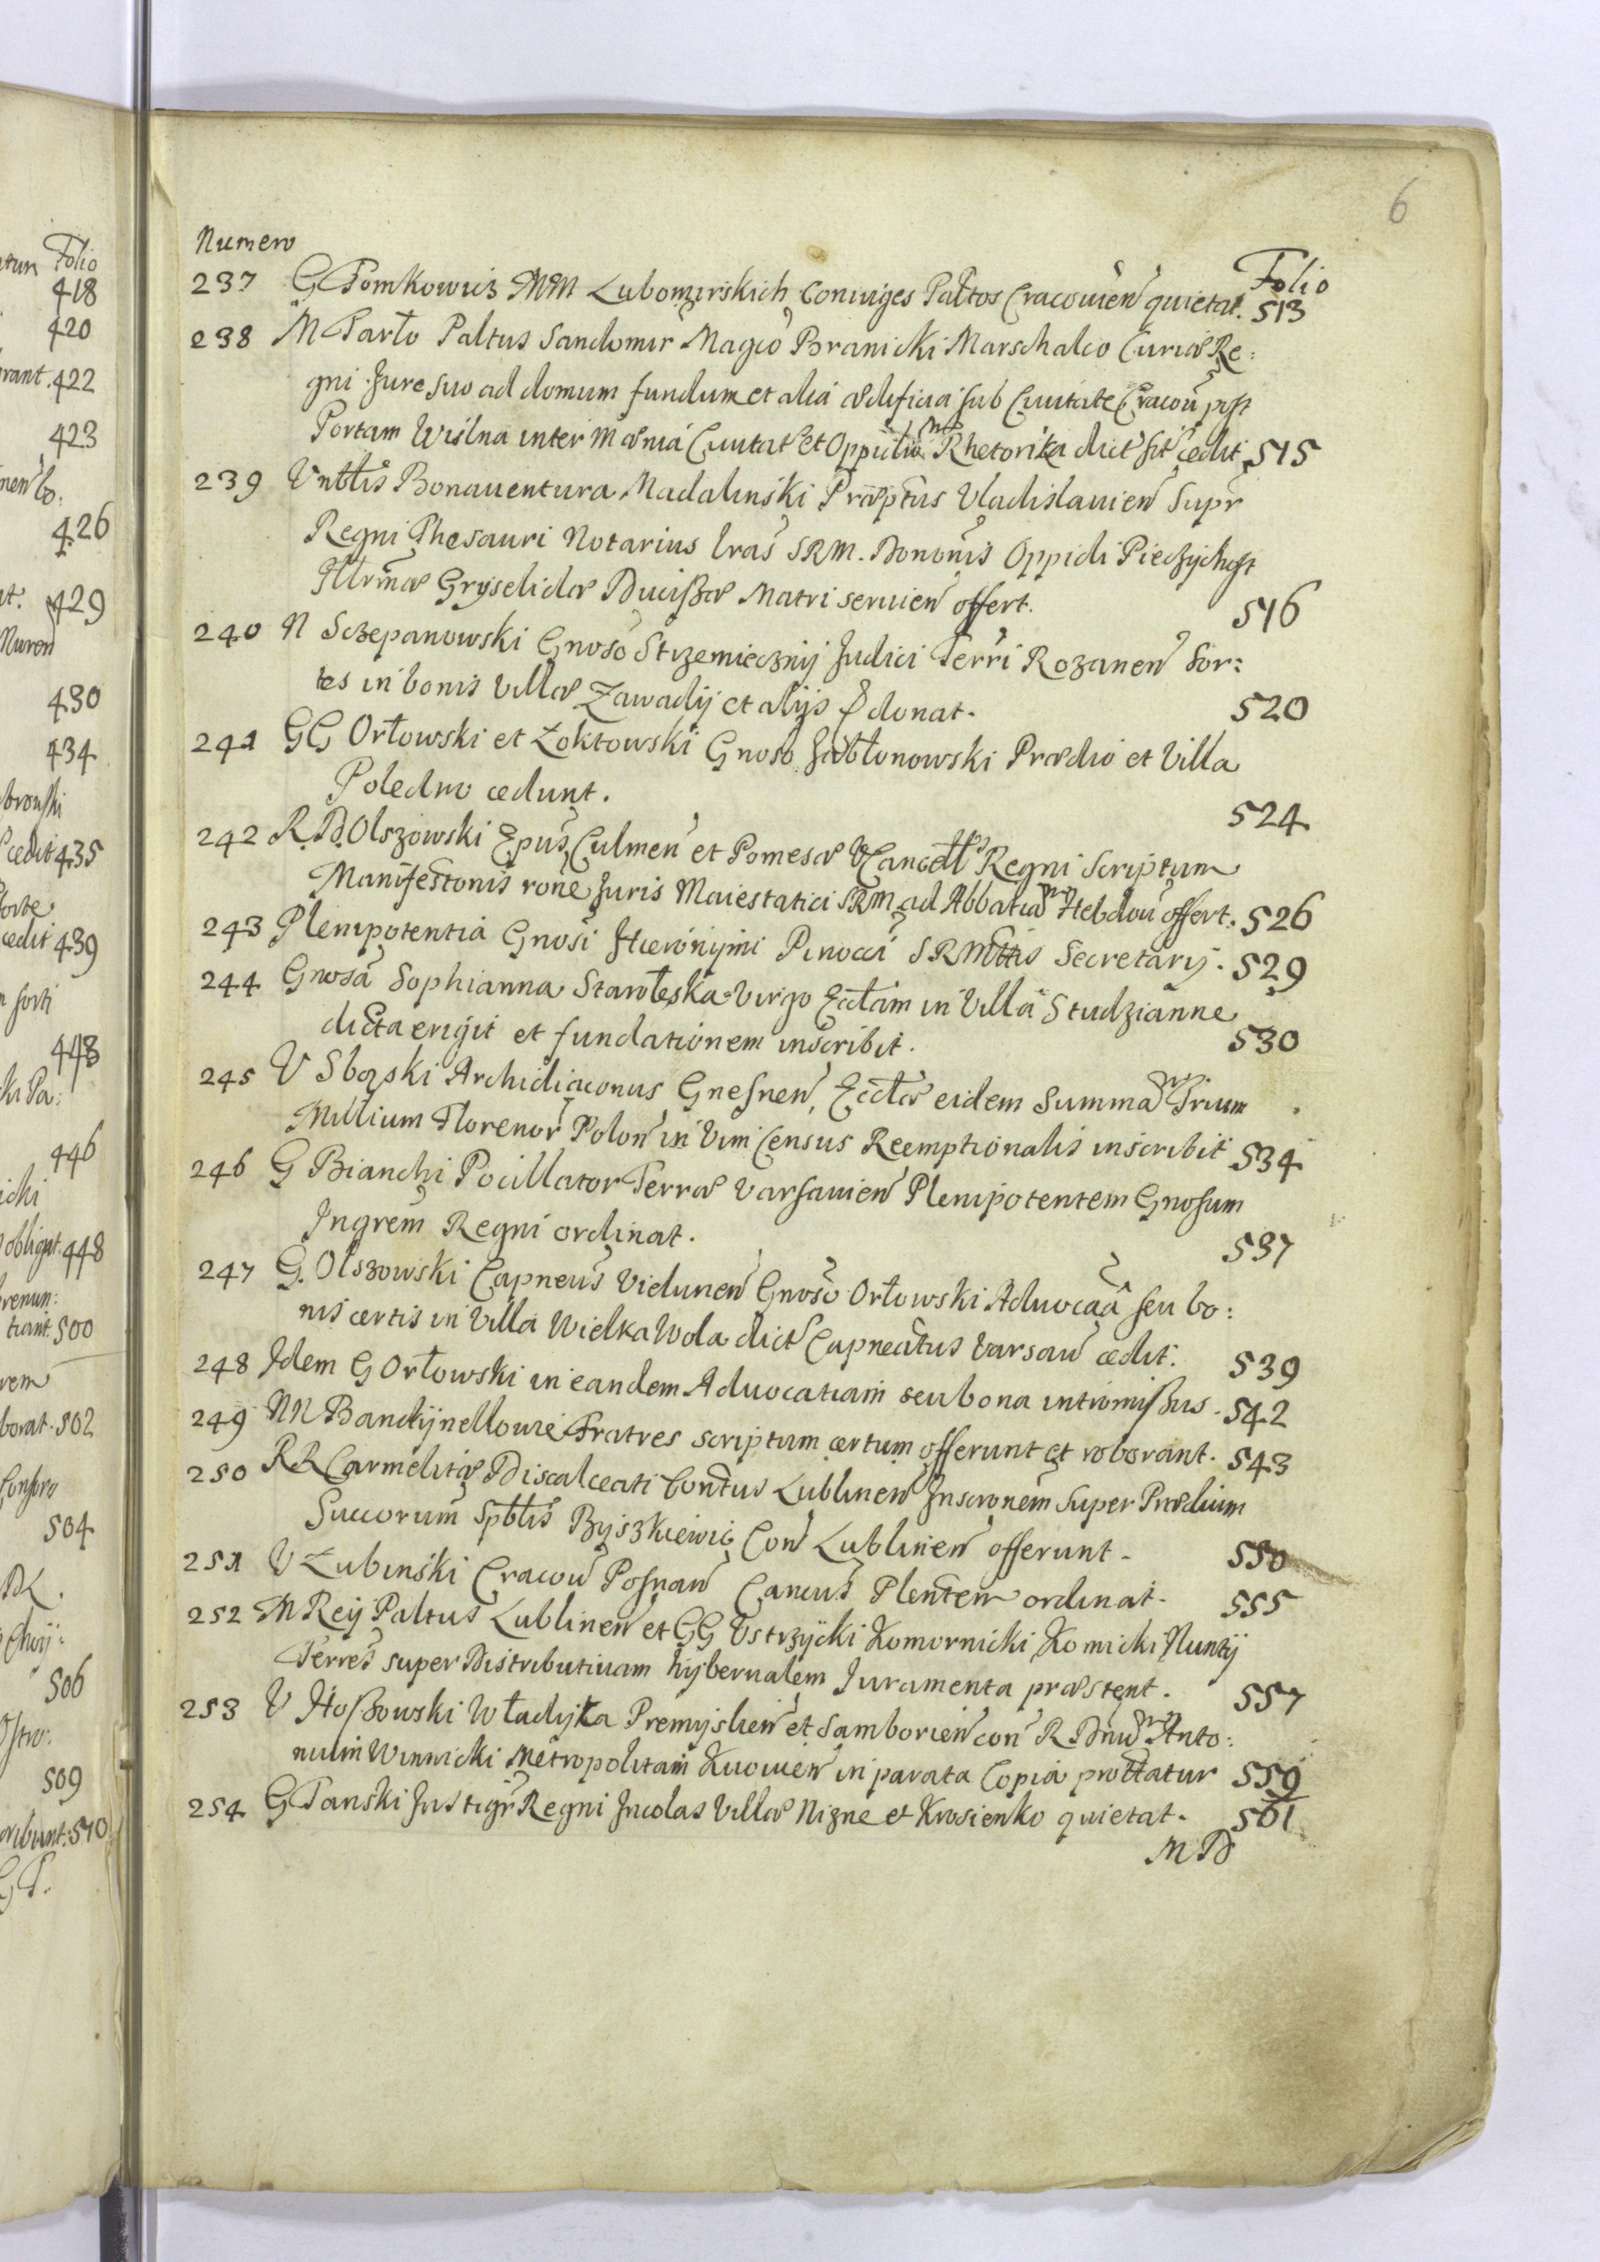 6
Numero Folio
237 G Tomkowicz MM Lubomirskich Coniuges Pałtos Cracouien quietat. 513
238 M Tarło Paltus Sandomir Magco Branicki Marschalco Curiæ Re:
gni Jure suo ad domum fundum et alia ædificia sub Ciuitate Cracou post
Portam Wislna inter Mænia Ciuitat et Oppidum Rhetorika dict sit cedit 515
239 Vnbtlis Bonauentura Madalinski Præptus Vladislauien Supr
Regni Thesauri Notarius lras SRM. Dononis Oppidi Pieczychost
Illrmæ Gryselidæ Ducissæ Matri seruien offert. 516
240 N Sczepanowski Gnoso Strzemiecznij Judici Terri Rozanen Sor:
tes in bonis Villæ Zawadij et alijs donat. 520
241 GG Orłowski et Zoktowski Gnoso Jabłonowski Prædio et Villa
Poledno cedunt. 524
242 R.D. Olszowski Epus Culmen et Pomesa VCancell Regni Scriptum
Manifestonis rone Juris Maiestatici SRM ad Abbatiam Hebdou offert. 526
243 Plenipotentia Gnosi Hieronijmi Pinocci SRMttis Secretarij. 529
244 Gnosa Sophianna Starołeska Virgo Ecclam in Villa Studzianne
dicta erigit et fundationem inscribit. 530
245 V Sbozski Archidiaconus Gnesnen, Ecclæ eidem Summam Trium
Millium Florenor Polon in Vim Census Reemptionalis inscribit 534
246 G Bianchi Pocillator Terræ Varsauien Plenipotentem Gnosum
Ingrem Regni ordinat. 537
247 G. Olszowski Capneus Vielunen Gnoso Orłowski Aduocaa seu bo:
nis certis in Villa Wielka Wola dict Capneatus Varsau cedit. 539
248 Idem G Orłowski in eandem Aduocatiam seu bona intromissus. 542
249 NN Bandijnellowie Fratres scriptum certum offerunt et roborant. 543
250 RR Carmelitæ Discalceati Contus Lublinen Inscronem super Prædium
Succorum Spbtlis Byiszkiewic Con Lublinen offerunt. 550
251 V Łubinski Cracou Posnan Cancus Plentem ordinat. 555
252 M Reij Paltus Lublinen et GG Vstrzycki Komornicki Komicki Nuntij
Terres super Distributiuam hijbernalem Iuramenta præstent. 557
253 V Hossowski Władijka Premijslien et Samborien con R Dnum Anto:
nium Winnicki Metropolitam Kuouien in parata Copia prottatur 559
254 G Tanski Instigr Regni Incolas Villæ Nizne et Krosienko quietat. 561
MD
Folio
418
420
422
423
426
429
430
434
cedit 435
cedit 439
448
446
obligat. 448
renun:
tiant. 500
borat. 502
504
506
509
510